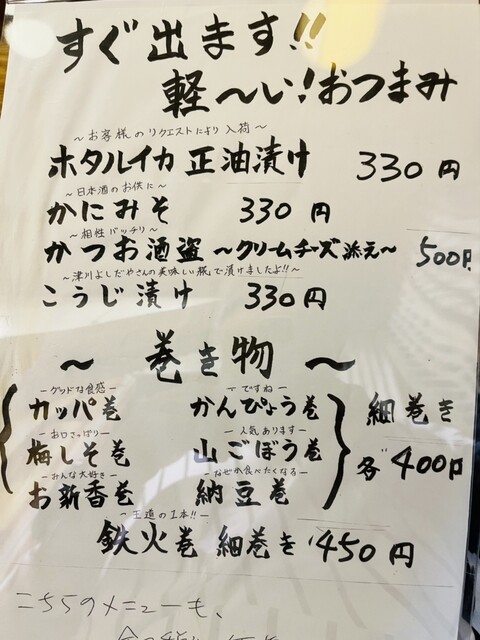 すぐ出ます!!
軽〜い!おつまみ
〜お客様のリクエストにより入荷〜
ホタルイカ正油漬け 330円
〜日本酒のお供に〜
かにみそ 330円
〜相性バッチリ〜
かつお酒盗〜クリームチーズ添え〜 500円
〜津川よしだやさんの美味しい糀で漬けましたよ!!〜
こうじ漬け 330円
〜巻き物〜
－グッドな食感－ －ですね－
カッパ巻 かんぴょう巻 細巻き
－お口さっぱり－ －人気あります－
梅しそ巻 山ごぼう巻 各400円
－みんな大好き－ －なぜか食べたくなる－
お新香巻 納豆巻
－王道の1本!!－
鉄火巻 細巻き 450円
こちらのメニューも、